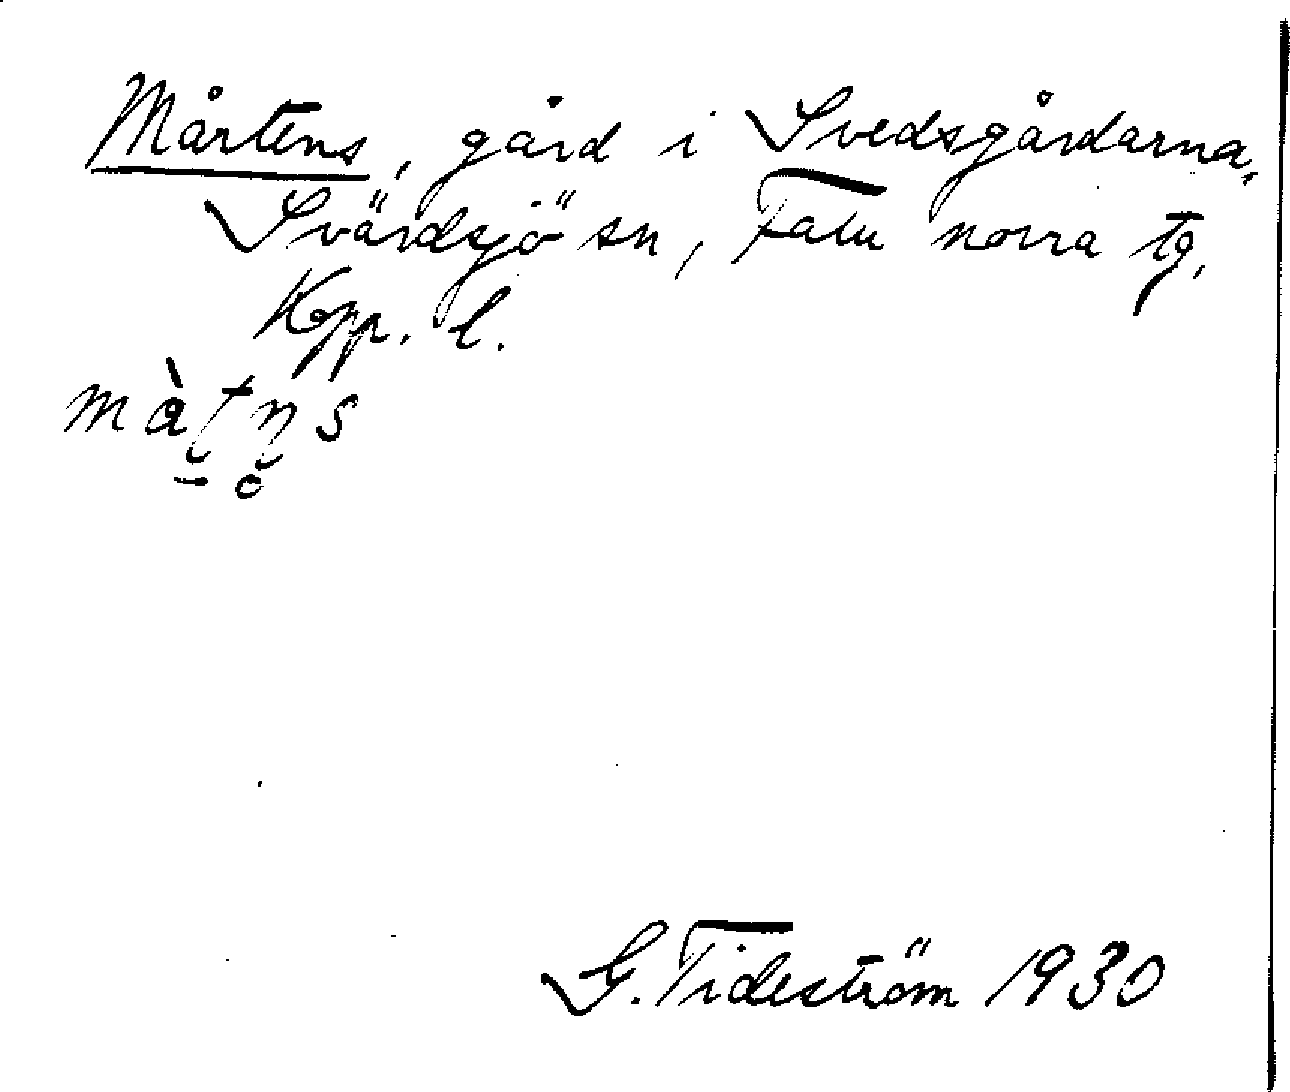 Mårtens, gård i Svedsgårdarna,
Svärdsjö sn, Falu norra tg,
Kpp. l.
màʈṇs
G. Tideström 1930